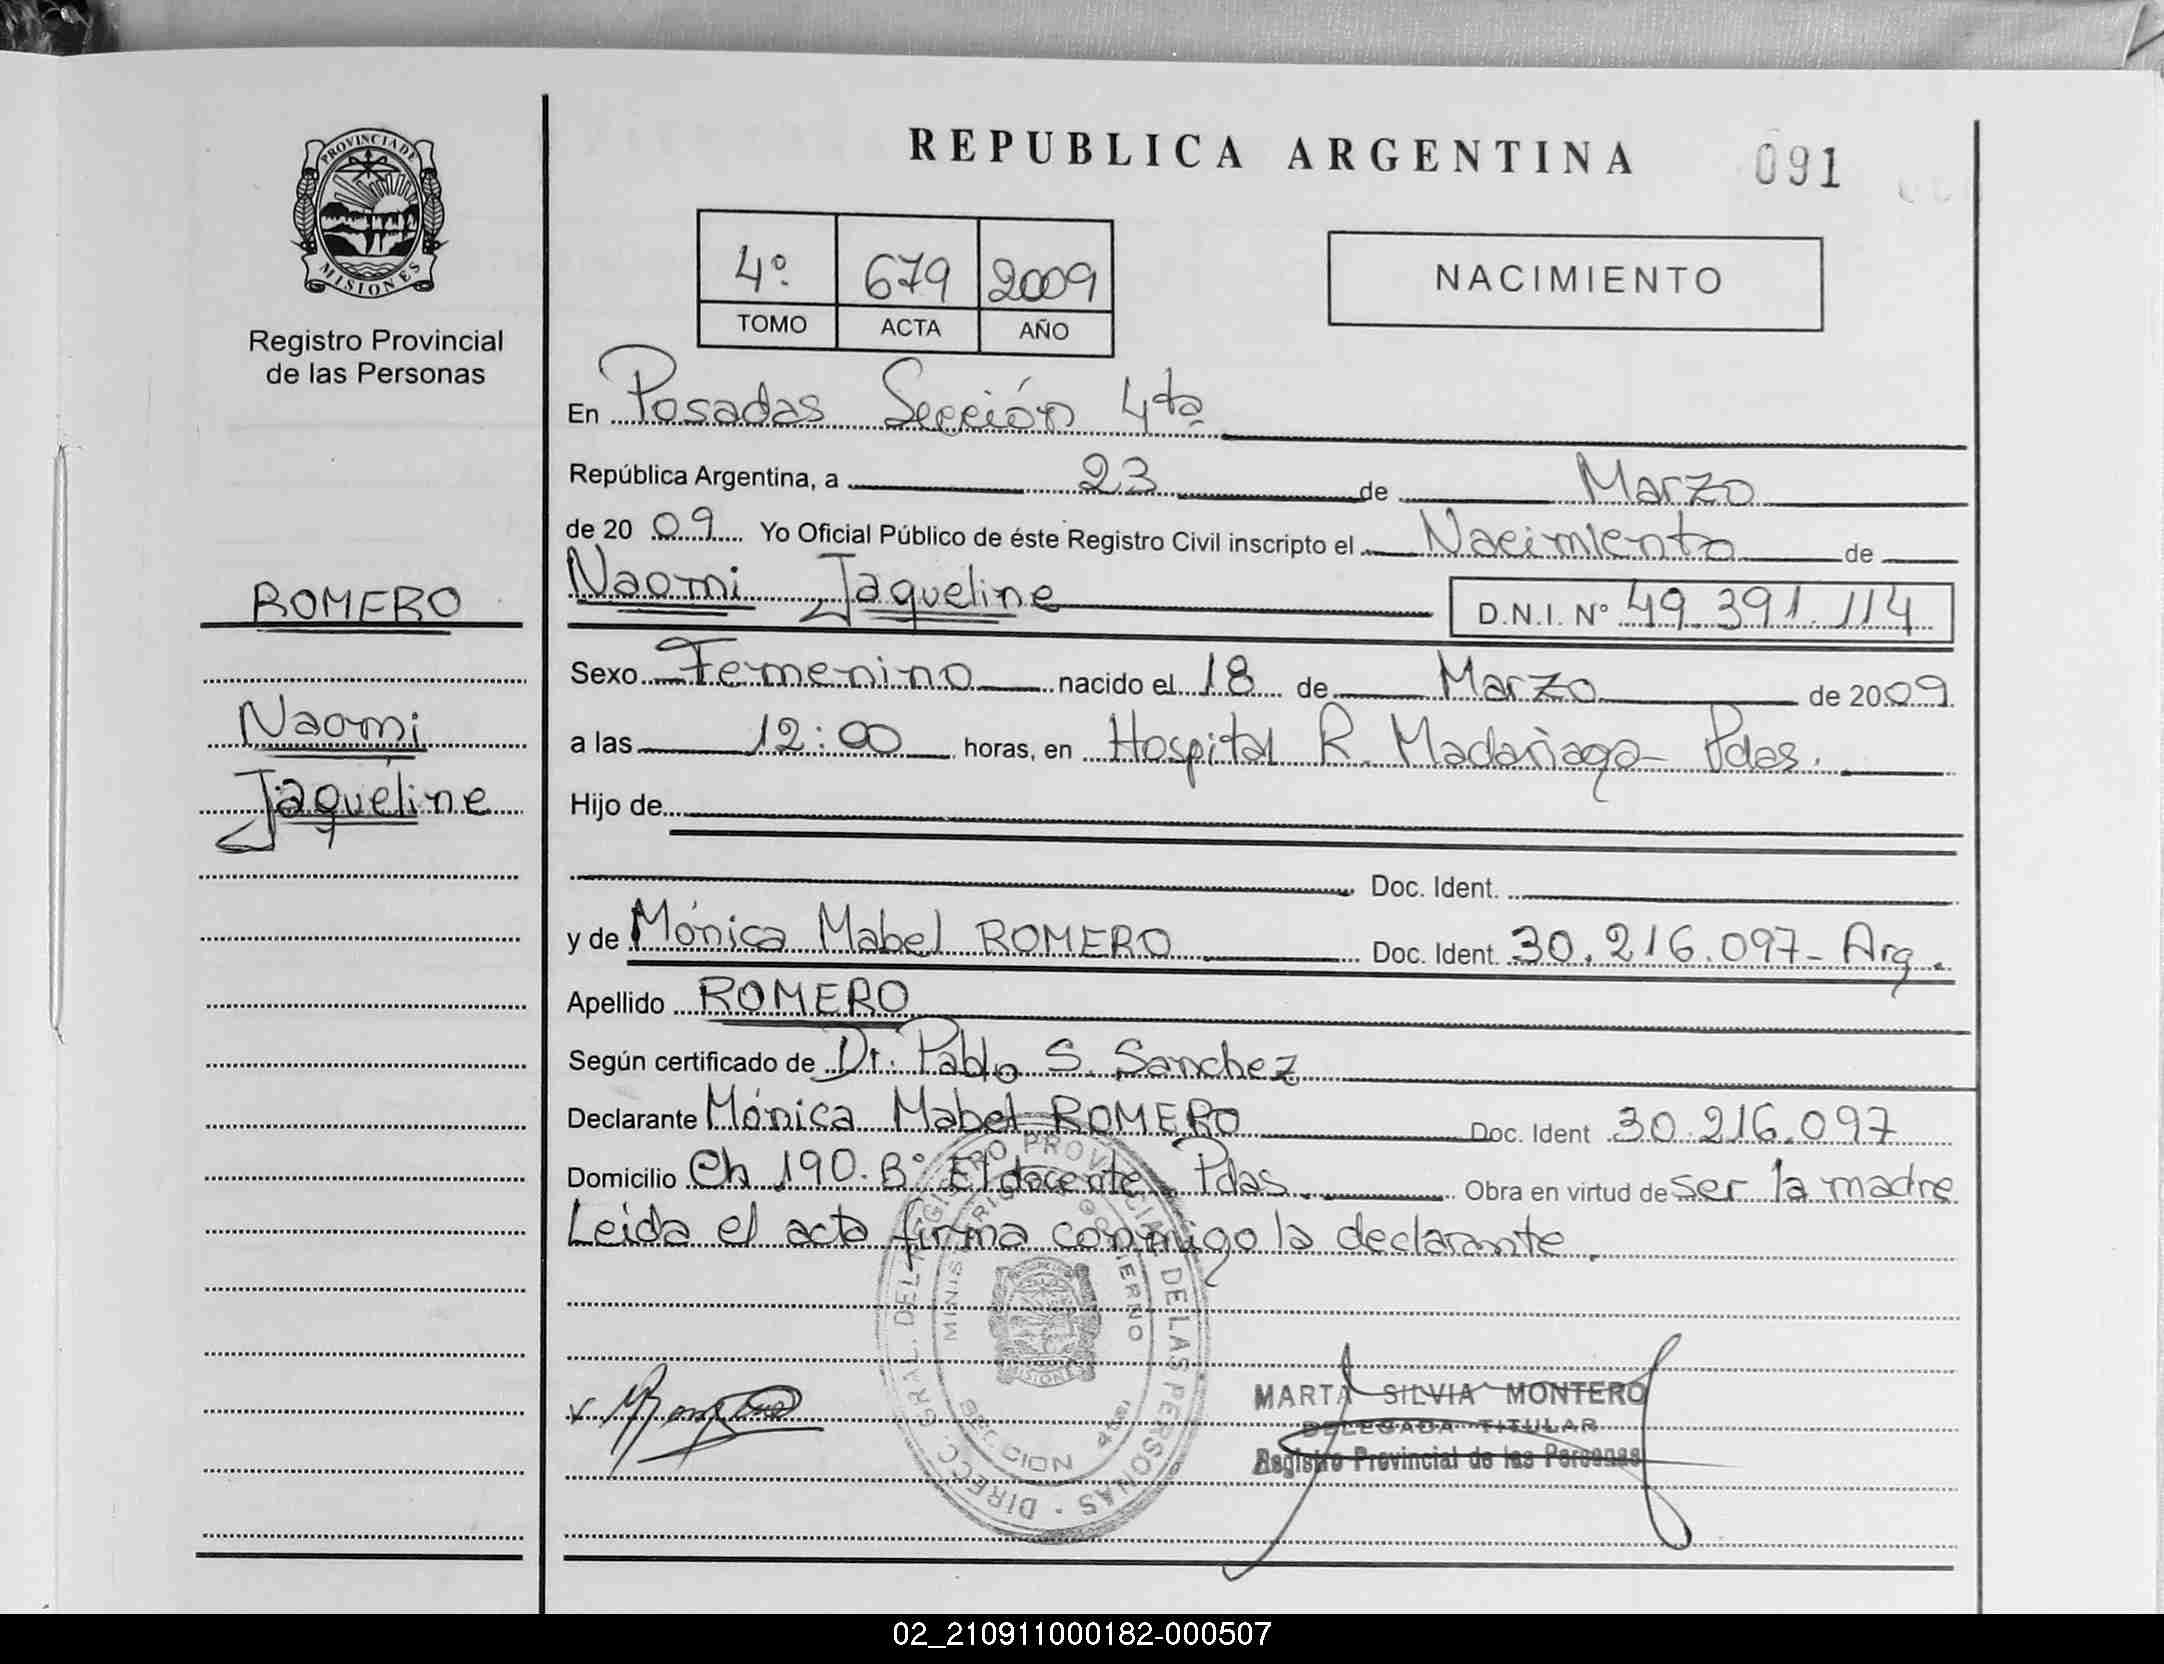 REPUBLICA ARGENTINA
091
PROVINCIA DE
MISIONES
Registro Provincial
de las Personas
4º 679 2009
TOMO ACTA AÑO
NACIMIENTO
En Posadas Sección 4ta
República Argentina, a 23 de Marzo
de 20 09 Yo Oficial Público de éste Registro Civil inscripto el Nacimiento de
ROMERO
Naomi Jaqueline D.N.I. Nº 49.391.114
Sexo Femenino nacido el 18 de Marzo de 2009
Naomi
a las 12:00 horas, en Hospital R. Madariaga - Pdas.
Jaqueline
Hijo de
Doc. Ident.
y de Mónica Mabel ROMERO Doc. Ident. 30.216.097 - Arg.
Apellido ROMERO
Según certificado de Dr. Pablo S. Sanchez
Declarante Mónica Mabel ROMERO Doc. Ident 30.216.097
Domicilio Ch 190. Bº El docente. Pdas. Obra en virtud de ser la madre
Leida el acta firma conmigo la declarante.
DIRECC. GRAL. DEL REGISTRO PROVINCIAL DE LAS PERSONAS
MINISTERIO GOBIERNO
MISIONES
MARTA SILVIA MONTERO
DELEGADA TITULAR
Registro Provincial de las Personas
02_210911000182-000507